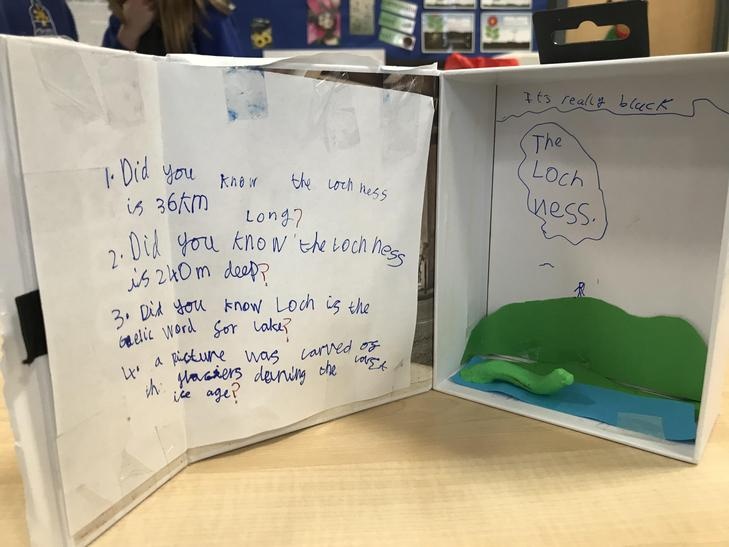 1. Did you know the loch ness
is 36km
Long?
2. Did you know the loch ness
is 240m deep?
3. Did you know Loch is the
Gaelic word for lake?
4. a picture was carved of
in glaciers during the last
ice age?
Its really black
The
Loch
ness.